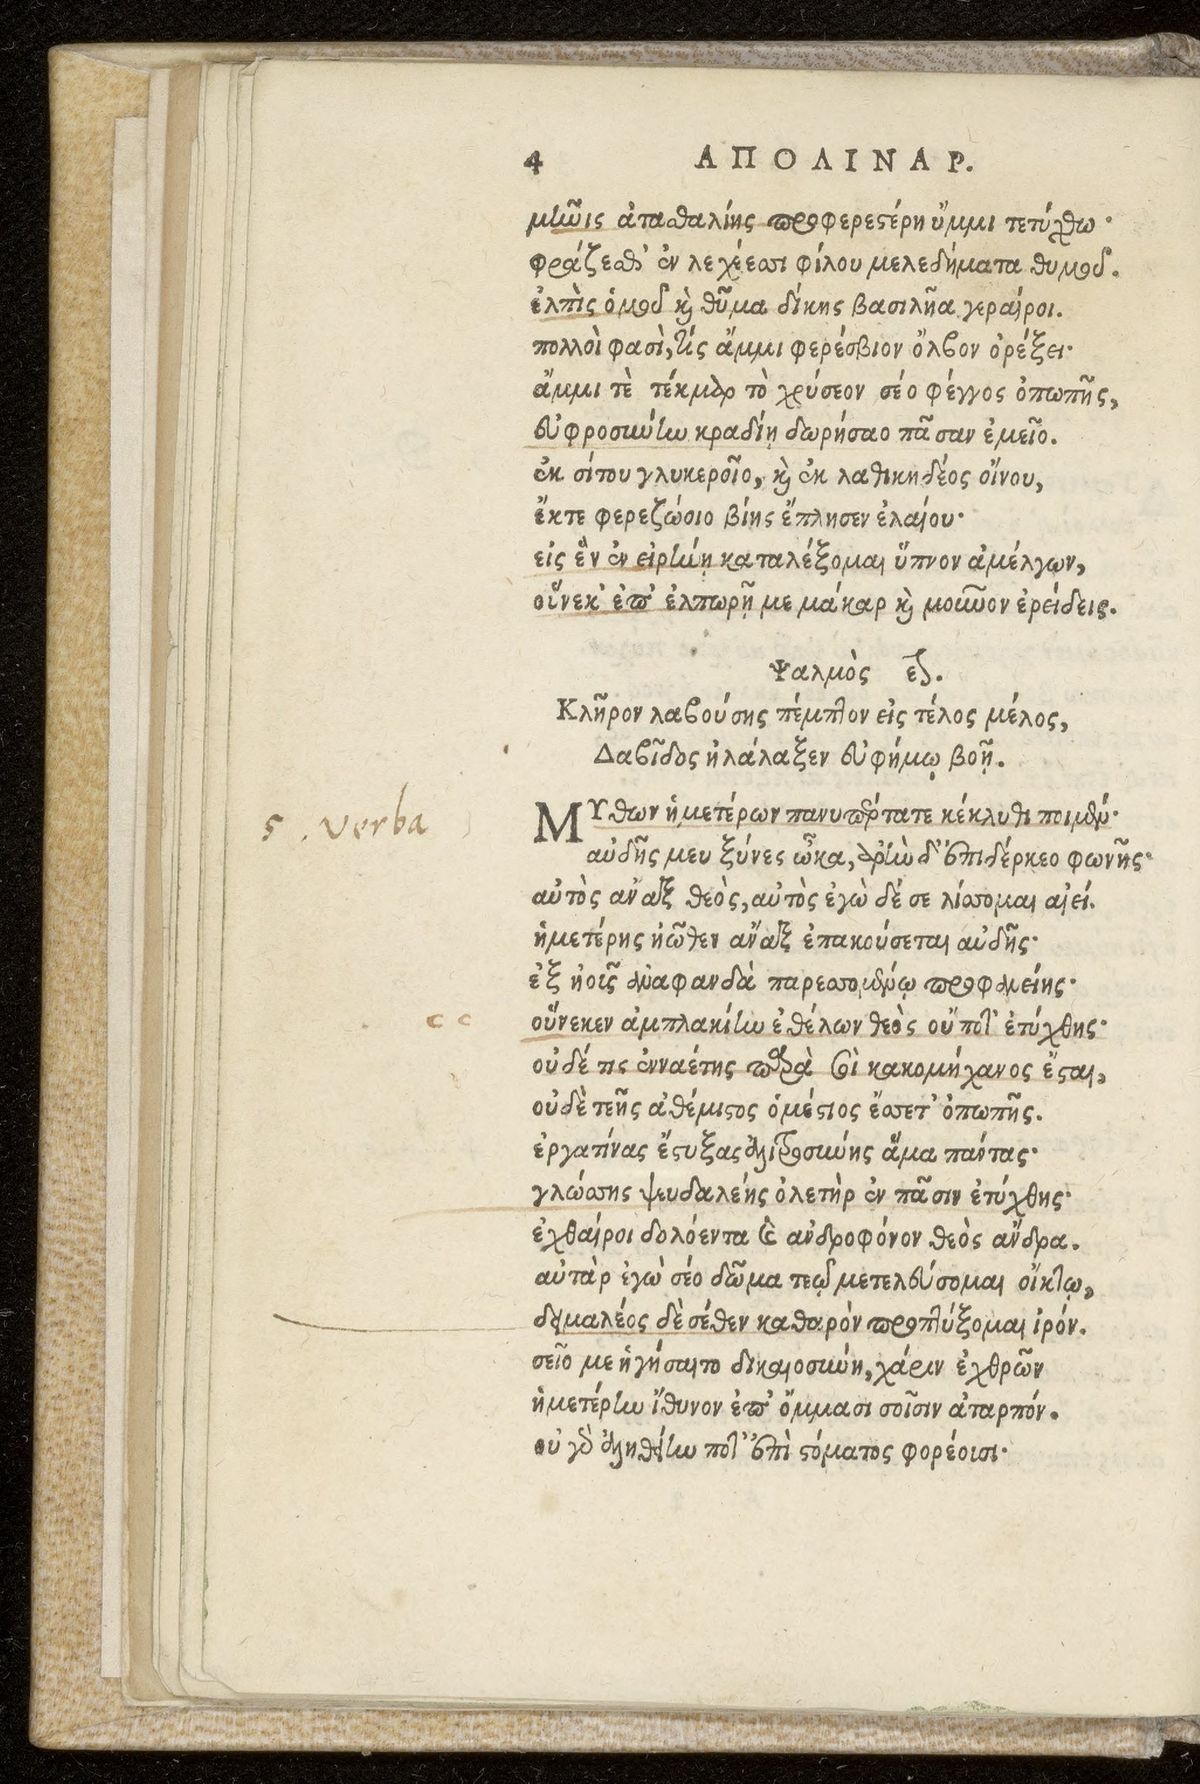 4 ΑΠΟΛΙΝΑΡ.
μῆνις ἀτασθαλίης προφερεστέρη ὔμμι τετύχθω·
φράζεσθ' ἐν λεχέεσσι φίλου μελεδήματα θυμοῦ.
ἐλπὶς ὁμοῦ καὶ θῦμα δίκης βασιλῆα γεραίροι.
πολλοὶ φασὶ, τίς ἄμμι φερέσβιον ὄλβον ὀρέξει·
ἄμμι τὲ τέκμαρ τὸ χρύσεον σέο φέγγος ὀπωπῆς,
εὐφροσύνην κραδίῃ δωρήσαο πᾶσαν ἐμεῖο.
ἐκ σίτου γλυκεροῖο, καὶ ἐκ λαθικηδέος οἴνου,
ἔκτε φερεζώσιο βίης ἔπλησεν ἐλαίου·
εἰς ἓν ἐν εἰρήνῃ καταλέξομαι ὕπνον ἀμέλγων,
οὕνεκ' ἐπ' ἐλπωρῇ με μάκαρ καὶ μοῦνον ἐρείδεις.
Ψαλμὸς ε.
Κλῆρον λαβούσης πέμπτον εἰς τέλος μέλος,
Δαβῖδος ἠλάλαξεν εὐφήμῳ βοῇ.
ΜΥθων ἡμετέρων πανυπέρτατε κέκλυθι ποιμήν·
5. verba
αὐδῆς μευ ξύνες ὦκα, ἐμὴν δ' ἐπιδέρκεο φωνῆς·
αὐτὸς ἄναξ θεὸς, αὐτὸς ἐγὼ δέ σε λίσσομαι αἰεί.
ἡμετέρης ἠῶθεν ἄναξ ἐπακούσεται αὐδῆς·
ἐξ ἠοῦς ἀναφανδὰ παρεσσομένῳ προφανείης·
cc
οὕνεκεν ἀμπλακίην ἐθέλων θεὸς οὔποτ' ἐτύχθης·
οὐδέ τις ἐνναέτης παρὰ σοὶ κακομήχανος ἔσται,
οὐδὲ τεῆς ἀθέμιστος ὁμέστιος ἔσσετ' ὀπωπῆς.
ἐργατίνας ἔστυξας ἀλιτροσύνης ἅμα πάντας·
γλώσσης ψευδαλέης ὀλετὴρ ἐν πᾶσιν ἐτύχθης·
ἐχθαίροι δολόεντα καὶ ἀνδροφόνον θεὸς ἄνδρα.
αὐτὰρ ἐγὼ σέο δῶμα τεῷ μετελεύσομαι οἴκτῳ,
δειμαλέος δὲ σέθεν καθαρὸν προπτύξομαι ἱρόν.
σεῖο με ἡγήσαιτο δικαιοσύνη, χάριν ἐχθρῶν
ἡμετέρην ἴθυνον ἐπ' ὄμμασι σοῖσιν ἀταρπόν.
οὐ γὰρ ἀληθείην ποτ' ἐπὶ στόματος φορέοισι·